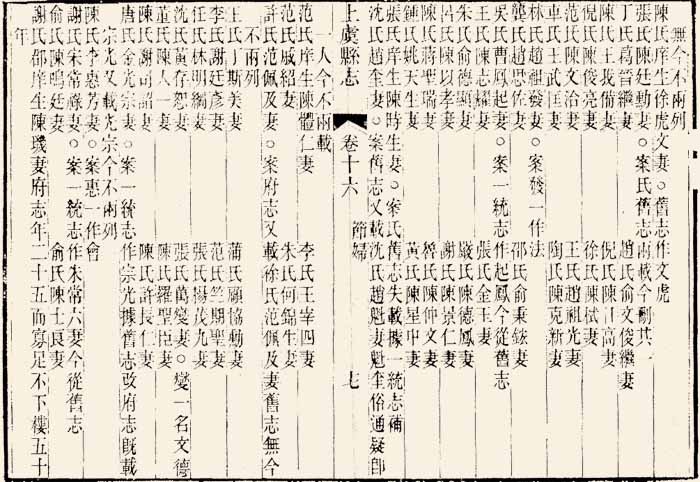 無今不兩列
陳氏庠生徐虎文妻○舊志作文虎
張氏陳廷勳妻○案氏舊志兩載今刪其一
丁氏葛晉繼妻　趙氏俞文俊繼妻
陳氏王我備妻　倪氏陳日高妻
倪氏陳俊亮妻　徐氏陳栻妻
范氏陳文治妻　王氏趙祖光妻
車氏王武匡妻　陶氏陳克新妻
林氏趙祖發妻○案發一作法
龔氏趙思佐妻　邵氏俞秉鉉妻
吳氏曹鳳起妻○案一統志作起鳳今從舊志
王氏陳志耀妻　張氏金玉妻
朱氏俞德顯妻　嚴氏陳德鳳妻
呂氏陳以孝妻　謝氏陳景仁妻
陳氏蔣聖瑞妻　魯氏陳仲文妻
鍾氏姚天生妻　黃氏陳星甲妻
張氏庠生陳時生妻○案氏舊志失載據一統志補
沈氏趙奎妻○案舊志又載沈氏趙魁妻魁奎俗通疑卽
上虞縣志　卷十六　節婦　七
一人今不兩載
范氏庠生陳體仁妻　李氏王宰四妻
范氏戚紹妻　朱氏何錦生妻
許氏范佩及妻○案府志又載徐氏范佩及妻舊志無今
不兩列
王氏丁斯美妻　蒲氏顧協勳妻
李氏謝廷彥妻　范氏竺期聖妻
任氏林明綱妻　張氏楊茂九妻
沈氏黃存恕妻　張氏萬燮妻○燮一名文德
董氏陳人一妻　陳氏羅聖臣妻
陳氏謝司韶妻　陳氏許長仁妻
唐氏金光宗妻○案一統志作宗光據舊志改府志旣載
宗光又載光宗今不兩列
陳氏李惠芳妻○案惠一作會
謝氏宋常祿妻○案一統志作朱常六妻今從舊志
俞氏陳鳴廷妻　俞氏陳士良妻
謝氏邵庠生陳璣妻府志年二十五而寡足不下樓五十
年